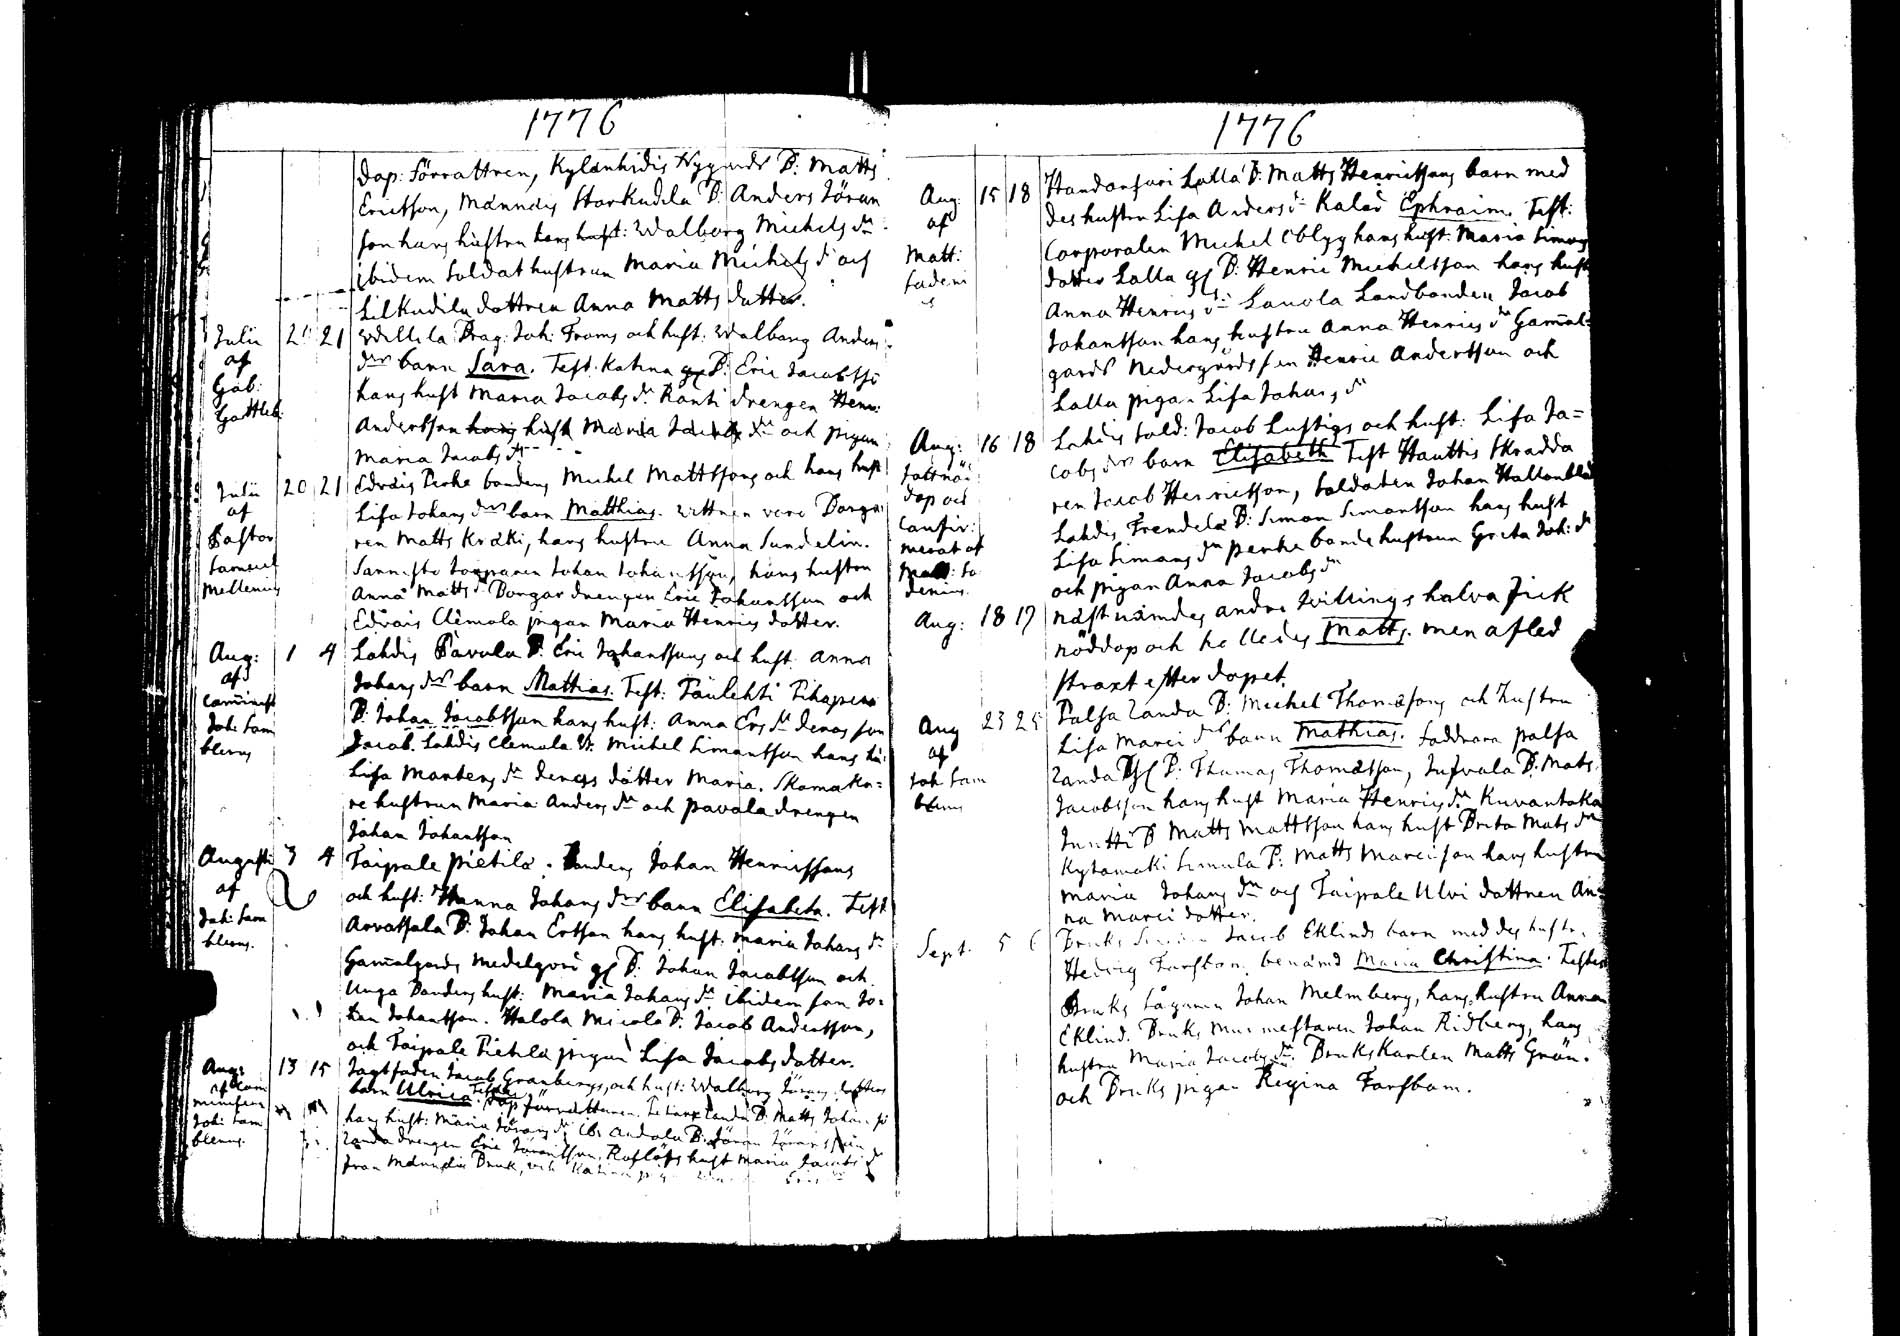 1776
dop: förrattren, Kylänkidis Nygårds B: Matts
Ericsson, Männäis Storkudila B: Anders Jöran
son hans hustru hans hust: Walborg Michels dr
ibidem Soldat hustrun Maria Michels dr och
Lilkudila dottren Anna Matts dotter.
Julii 20 21 Willila Drag: Joh: Froms och hust: Walborg Anders
af drs barn Sara. Test: Katina gl B: Eric Jacobsso
Gab: hans hust Maria Jacobs dr Ranti drengen Henr:
Gottleb: Andersson hans hust Maria Jacobs dr och pigan
Maria Jacobs dr
Julii 20 21 Edväis Perke bondens Michel Mattssons och hans hust
af Lisa Johans drs barn Matthias. Wittnen voro Borga
Pastor ren Matts Kräki, hans hustru Anna Sundelin.
Samuel Sannisto Johan Johansson, hans hustru
Mellenius Anna Matts dr Borgar drengen Eric Johansson och
Edväis Clemola pigan Maria Henrics dotter.
Aug: 1 4 Lahdis Pavola B: Eric Johanssons och hust Anna
af Johans drs barn Mattias. Test: Paulehti
Joh: Sam B: Johan Jacobsson hans hust: Anna Ers dr deras son
blerus Jacob. Lahdis Clemola B: Michel Simonsson hans hu:
Lisa Mårtens dr deras dotter Maria. Skomaka=
re hustrun Maria Anders dr och pavola drengen
Johan Johansson
Augusti 3 4 Taipale Pietilä. Bondens Johan Henricssons
af och hust: Hanna Johans drs barn Elisabeta. Test
Joh: Sam Arvassala B: Johan Ersson hans hust: Maria Johans dr
blerus. Gamalgårds Medelgård gl B: Johan Jacobsson och
Unga Bondens hust: Maria Johans dr ibidem son Jo:
han Johansson. Halola Micola B: Jacob Andersson,
och Taipale Pietilä pigan Lisa Jacobs dotter.
Aug: 13 15 Jagtfaden Jacob Granbergs, och hust: Walborg Jörans dotters
barn Ulrica. B: Matts Johans so
Joh: Sam hans hust: Maria Jörans dr B: Jöran Jöransson
blerus. Zanda drengen Eric Jöransson, hust Maria Jacobs dr
från Männäis Bruk, och Katina
1776
Aug: 15 18 Handarsuri Lalla B: Matts Henricssons barn med
af des hustru Lisa Anders dr Kalad Ephraim. Test:
Matt: Corporalen Michel Oblyg hans hust: Maria Simons
Sadeni dotter Lalla gl B: Henric Michelsson hans hust
us Anna Henrics dr Lauola Landbonden Jacob
Johansson hans hustru Anna Henrics dr Gamal=
gårds Nedergårds son Henric Andersson och
Lalla pigan Lisa Johans dr
Aug: 16 18 Lahdis sold: Jacob Lustigs och hust: Lisa Ja=
cobs drs barn Elisabeth Test Hauttis Skradda
dop och ren Jacob Henricsson, Soldaten Johan Hallonblad
confir: Lahdis Trendelä B: Simon Simonsson hans hust
merat af Lisa Simons dr perke bonde hustrun Greta Joh: dr
Matt: Sa och pigan Anna Jacobs dr
denius.
Aug: 18 17 Näst nämdes andra twillings halva fick
nöddop och kallades Matts. men afled
straxt efter dopet.
Aug 23 25 Palsa Zanda B: Michel Thomassons och hustru
af Lisa Marci drs barn Mathias. Faddrara palsa
Joh: Sam Zanda gl B: Thomas Thomasson, Jusvala B: Mats
blerus Jacobsson hans hust Maria Henrics dr Kuvantaka
Juntti B Matts Mattsson hans hust Brita Mats dr
Kytomäki Simula B: Matts Marcisson hans hustru
Maria Johans dr och Taipale Ulvi dottren An=
na Marci dotter.
Sept. 5 6 Bruks Jacob Eklinds barn med des hustru
Hedvig Forsbom, benämd Maria Christina. Testes
Bruks Sågaren Johan Melmberg, hans hustru Anna
Eklind. Bruks Murmestaren Johan Ridberg, hans
hustru Maria Jacobs dr. Bruks Karlen Matts Grön.
och Bruks pigan Regina Forsbom.